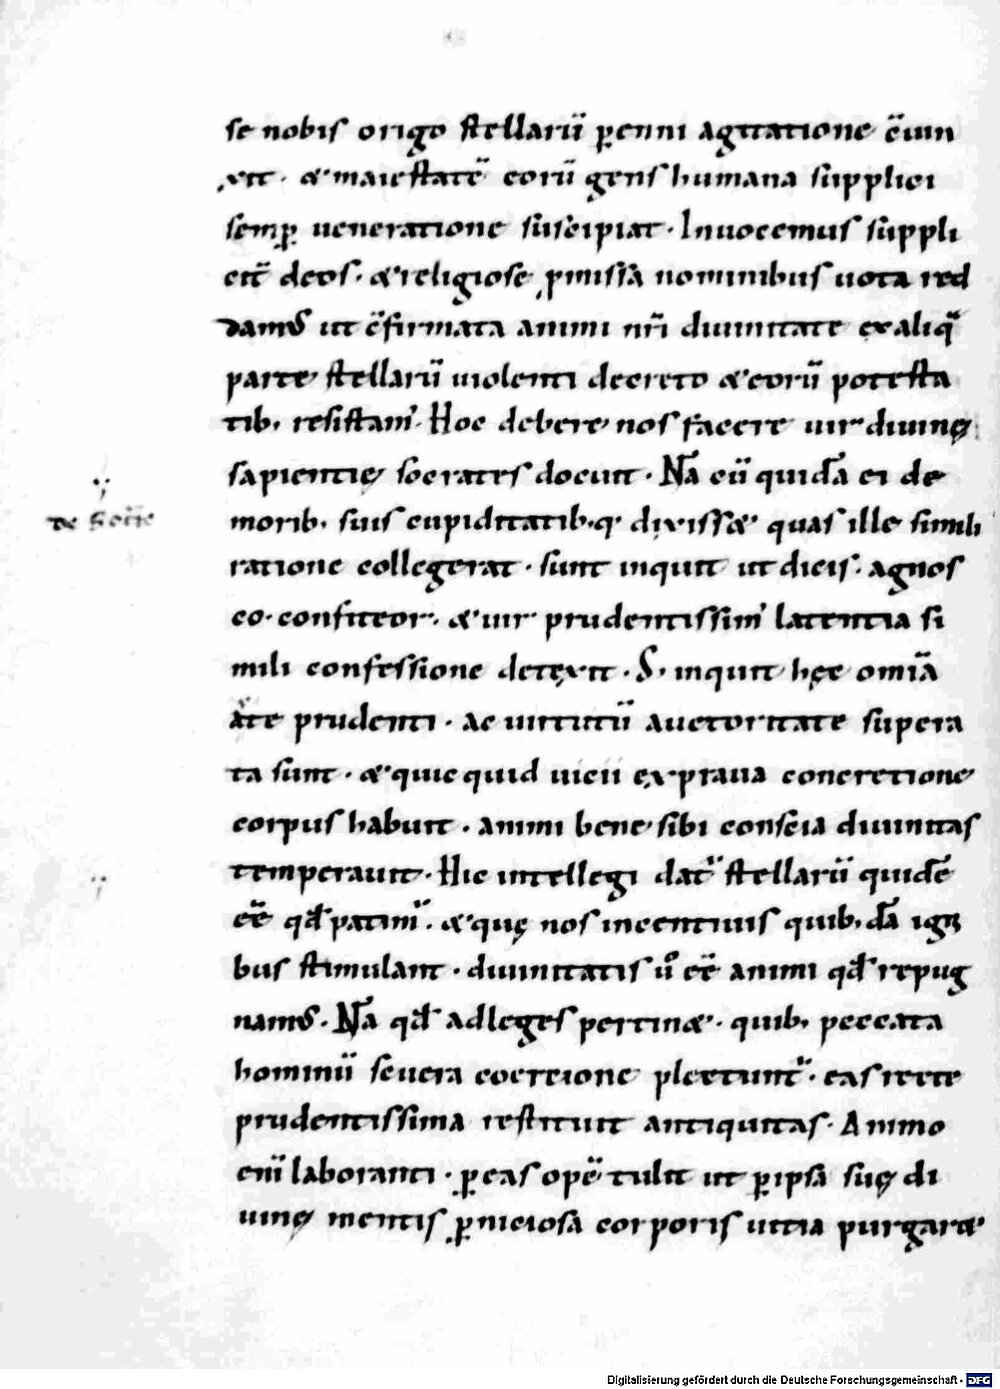 se nobis origo stellarũ p̱enni agitatione c̃iun
xit · & maiestatẽ eorũ gens humana supplici
semp̱ ueneratione suscipiat · Inuocemus suppli
cit̃ deos · & religiose p̱missa nominibus uota red
damꝰ ut c̃firmata animi nr̃i diuinitate ex aliq̃
parte stellarũ uiolenti decreto & eorũ potesta
tib; resistam᾽ · Hoc debere nos facere uir diuinę
sapientię socrates docuit · Nã cũ quidã ei de
morib; suis cupiditatib;q· dixissæ quas ille simili
ratione collegerat · sunt inquit ut dicis · agnos
co · confiteor · & uir prudentissim᾽ latentia si
mili confessione detexit · S; inquit hęc omĩa
a᷑te prudenti · ac uirtutũ auctoritate supera
ta sunt · & quicquid uicii ex praua concretione
corpus habuit · animi bene sibi conscia diuinitas
temperauit · Hic intellegi dat᷑ stellarũ quidẽ
eẽ qđ patim᷑ · & quę nos incentiuis quib;dã igni
bus stimulant · diuinitatis u͛ eẽ animi qđ repug
namꝰ · Nã qđ ad leges pertinæ · quib; peccata
hominũ seuera coercione plectunt᷑ · eas recte
prudentissima restituit antiquitas · Animo
eni᷑ laboranti · p̱ eas opẽ tulit ut p̱ ipsã suę di
uinę mentis p̱niciosa corporis uitia purgaræ
de Socte
Digitalisierung gefördert durch die Deutsche Forschungsgemeinschaft - DFG